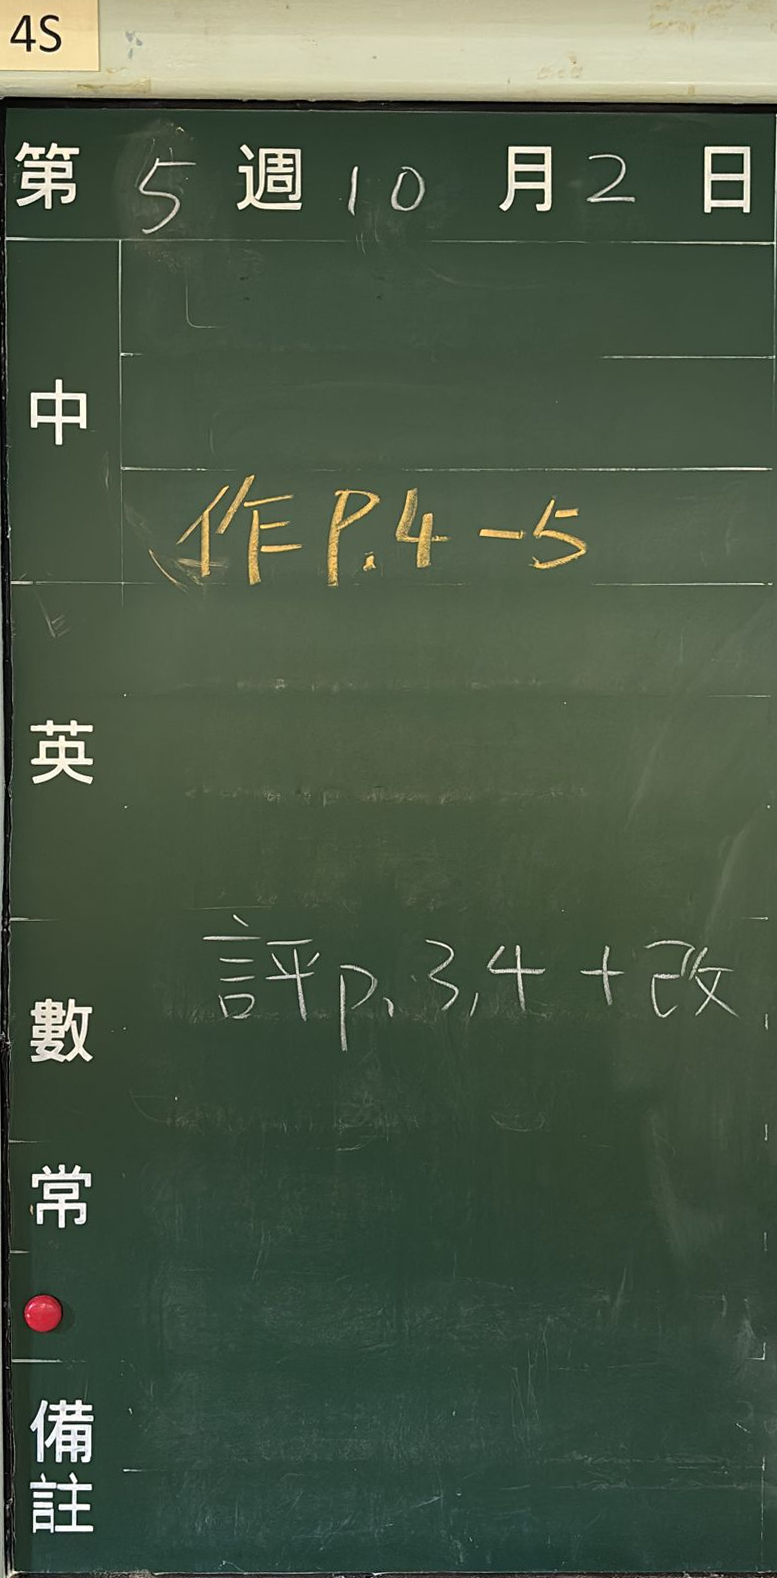 4S
第 5 週 10 月 2 日
中
作 P.4-5
英
評 p.3,4 + 改
數
常
備
註